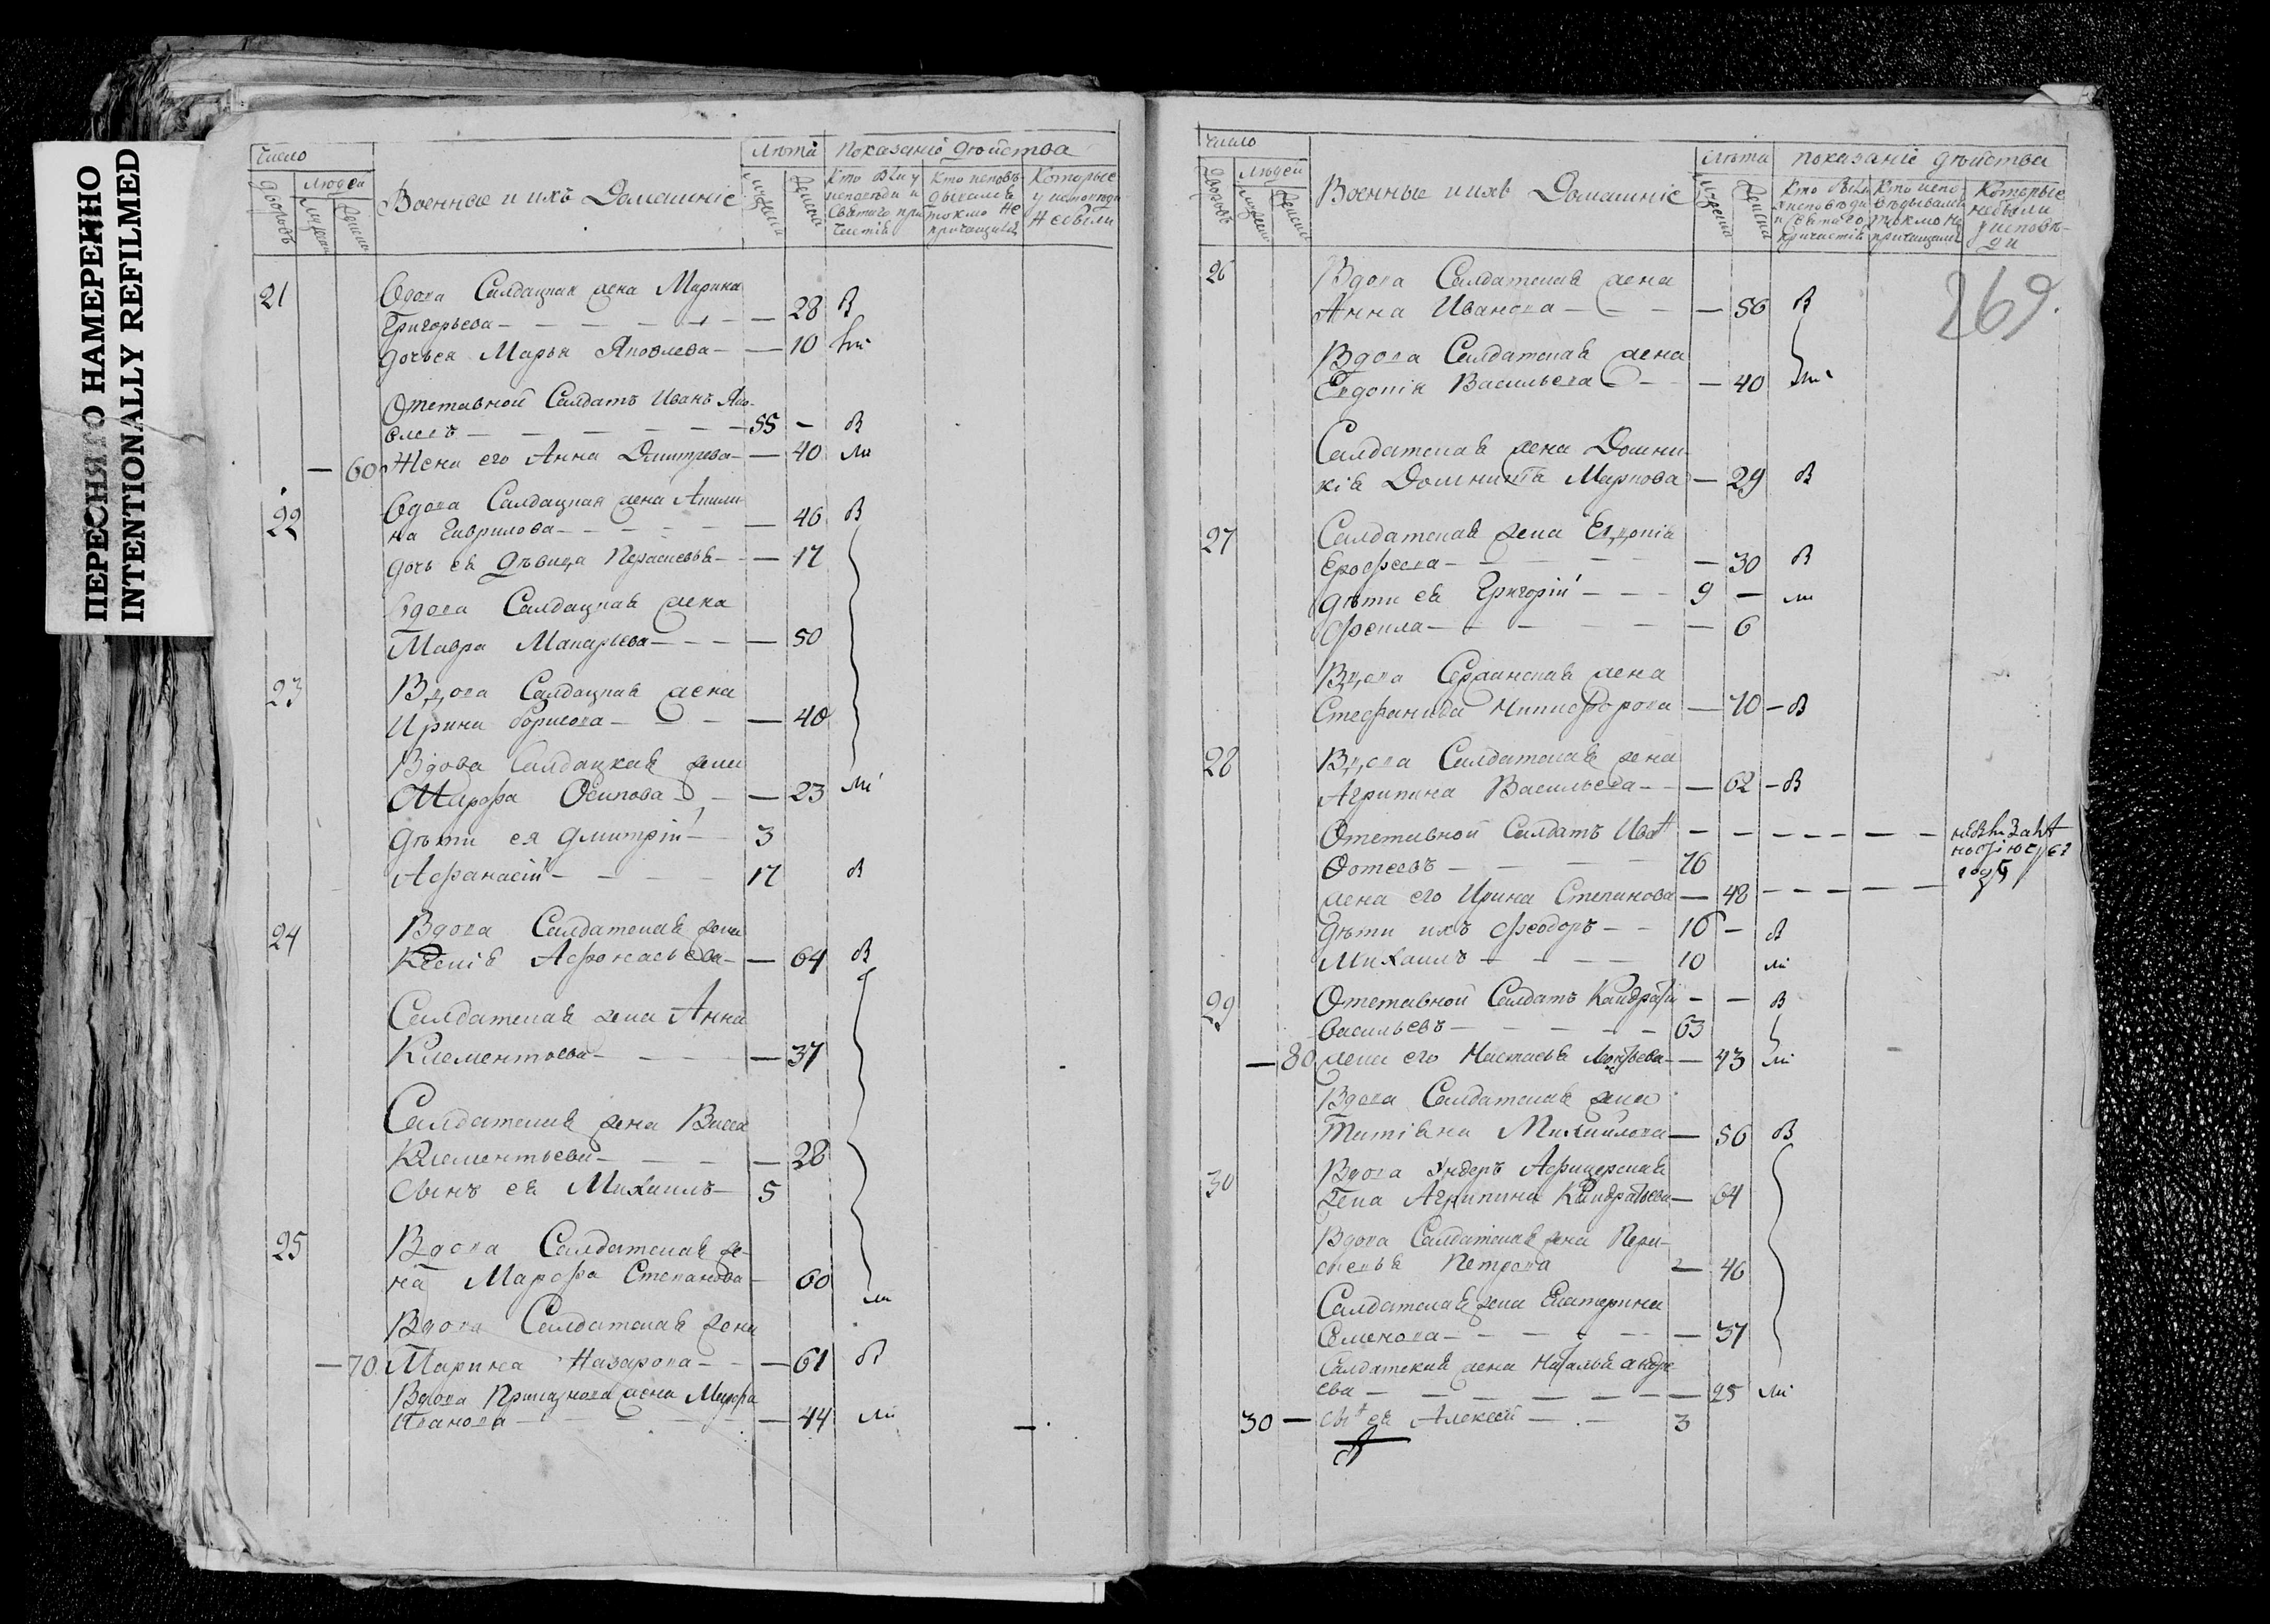 ПЕРЕСНЯТО НАМЕРЕННО
INTENTIONALLY REFILMED
Число
Людей
Дворовъ
Военные и ихъ Домашніе
Лѣта
Показаніе дѣйства
Кто были у исповѣди и Святаго причастія
Кто исповѣдывался токмо не причащался
Которые у исповѣди не были
21
Вдова Салдацкая жена Марина
Григорьева — 28 В
дочь ея Марья Яковлева — 10
Отставной Салдатъ Иванъ Яко-
влевъ — 55 — В
— 60 Жена его Анна Дмитрева — 40 ли
22
Вдова Салдацкая жена Акили-
на Гаврилова — 46 В
дочь ея дѣвица Парасковья — 17
Вдова Салдацкая жена
Мавра Макарьева — 50
23
Вдова Салдацкая жена
Ирина Борисова — 40
Вдова Салдацкая жена
Марфа Осипова — 23 ли
дѣти ея Дмитрій — 3
Афанасій — 17 В
24
Вдова Салдатская жена
Ксенія Афонасьева — 64 В
Салдатская жена Анна
Клементьева — 37
Салдатская жена Васса
Клементьева — 28
сынъ ея Михаилъ — 5
25
Вдова Салдатская же-
на Марфа Степанова — 60 ли
Вдова Салдатская жена
— 70 Марина Назарова — 61 В
Вдова жена Марфа
Иванова — 44 ли
Число
Дворовъ
Людей
Военные и ихъ Домашніе
Лѣта
показаніе дѣйства
Кто были у исповѣди и Святаго причастія
Кто исповѣдывались токмо не причащались
Которые не были у исповѣди
269.
26
Вдова Салдатская жена
Анна Иванова — 56 В
Вдова Салдатская жена
Евдокія Васильева — 40 ли
Салдатская жена Домни-
кія Маркова — 29 В
27
Салдатская жена Евдокія
Ерофеева — 30 В
дѣти ея Григорій — 9 — ли
Фекла — 6
Вдова жена
Стефанида Никифорова — 70 — В
28
Вдова Салдатская жена
Агрипина Васильева — 62 — В
Отставной Салдатъ Иван
Фотеевъ — 76
жена его Ирина Степанова — 48
дѣти ихъ Феодоръ — 16 — В
Михаилъ — 10 ли
29
Отставной Салдатъ Кандратій — — В
Васильевъ — 63
— 80 жена его Настасья — 43 ли
Вдова Салдатская жена
Татіяна Михайлова — 56 В
30
Вдова Ундеръ Афицерская
жена Агрипина Кандратьева — 64
Вдова Салдатская жена Пара-
сковья Петрова — 46
Салдатская жена Екатерина
Семенова — 37
Салдатская жена Наталья Андре
ева — 25 ли
30 — сын ея Алексей — 3